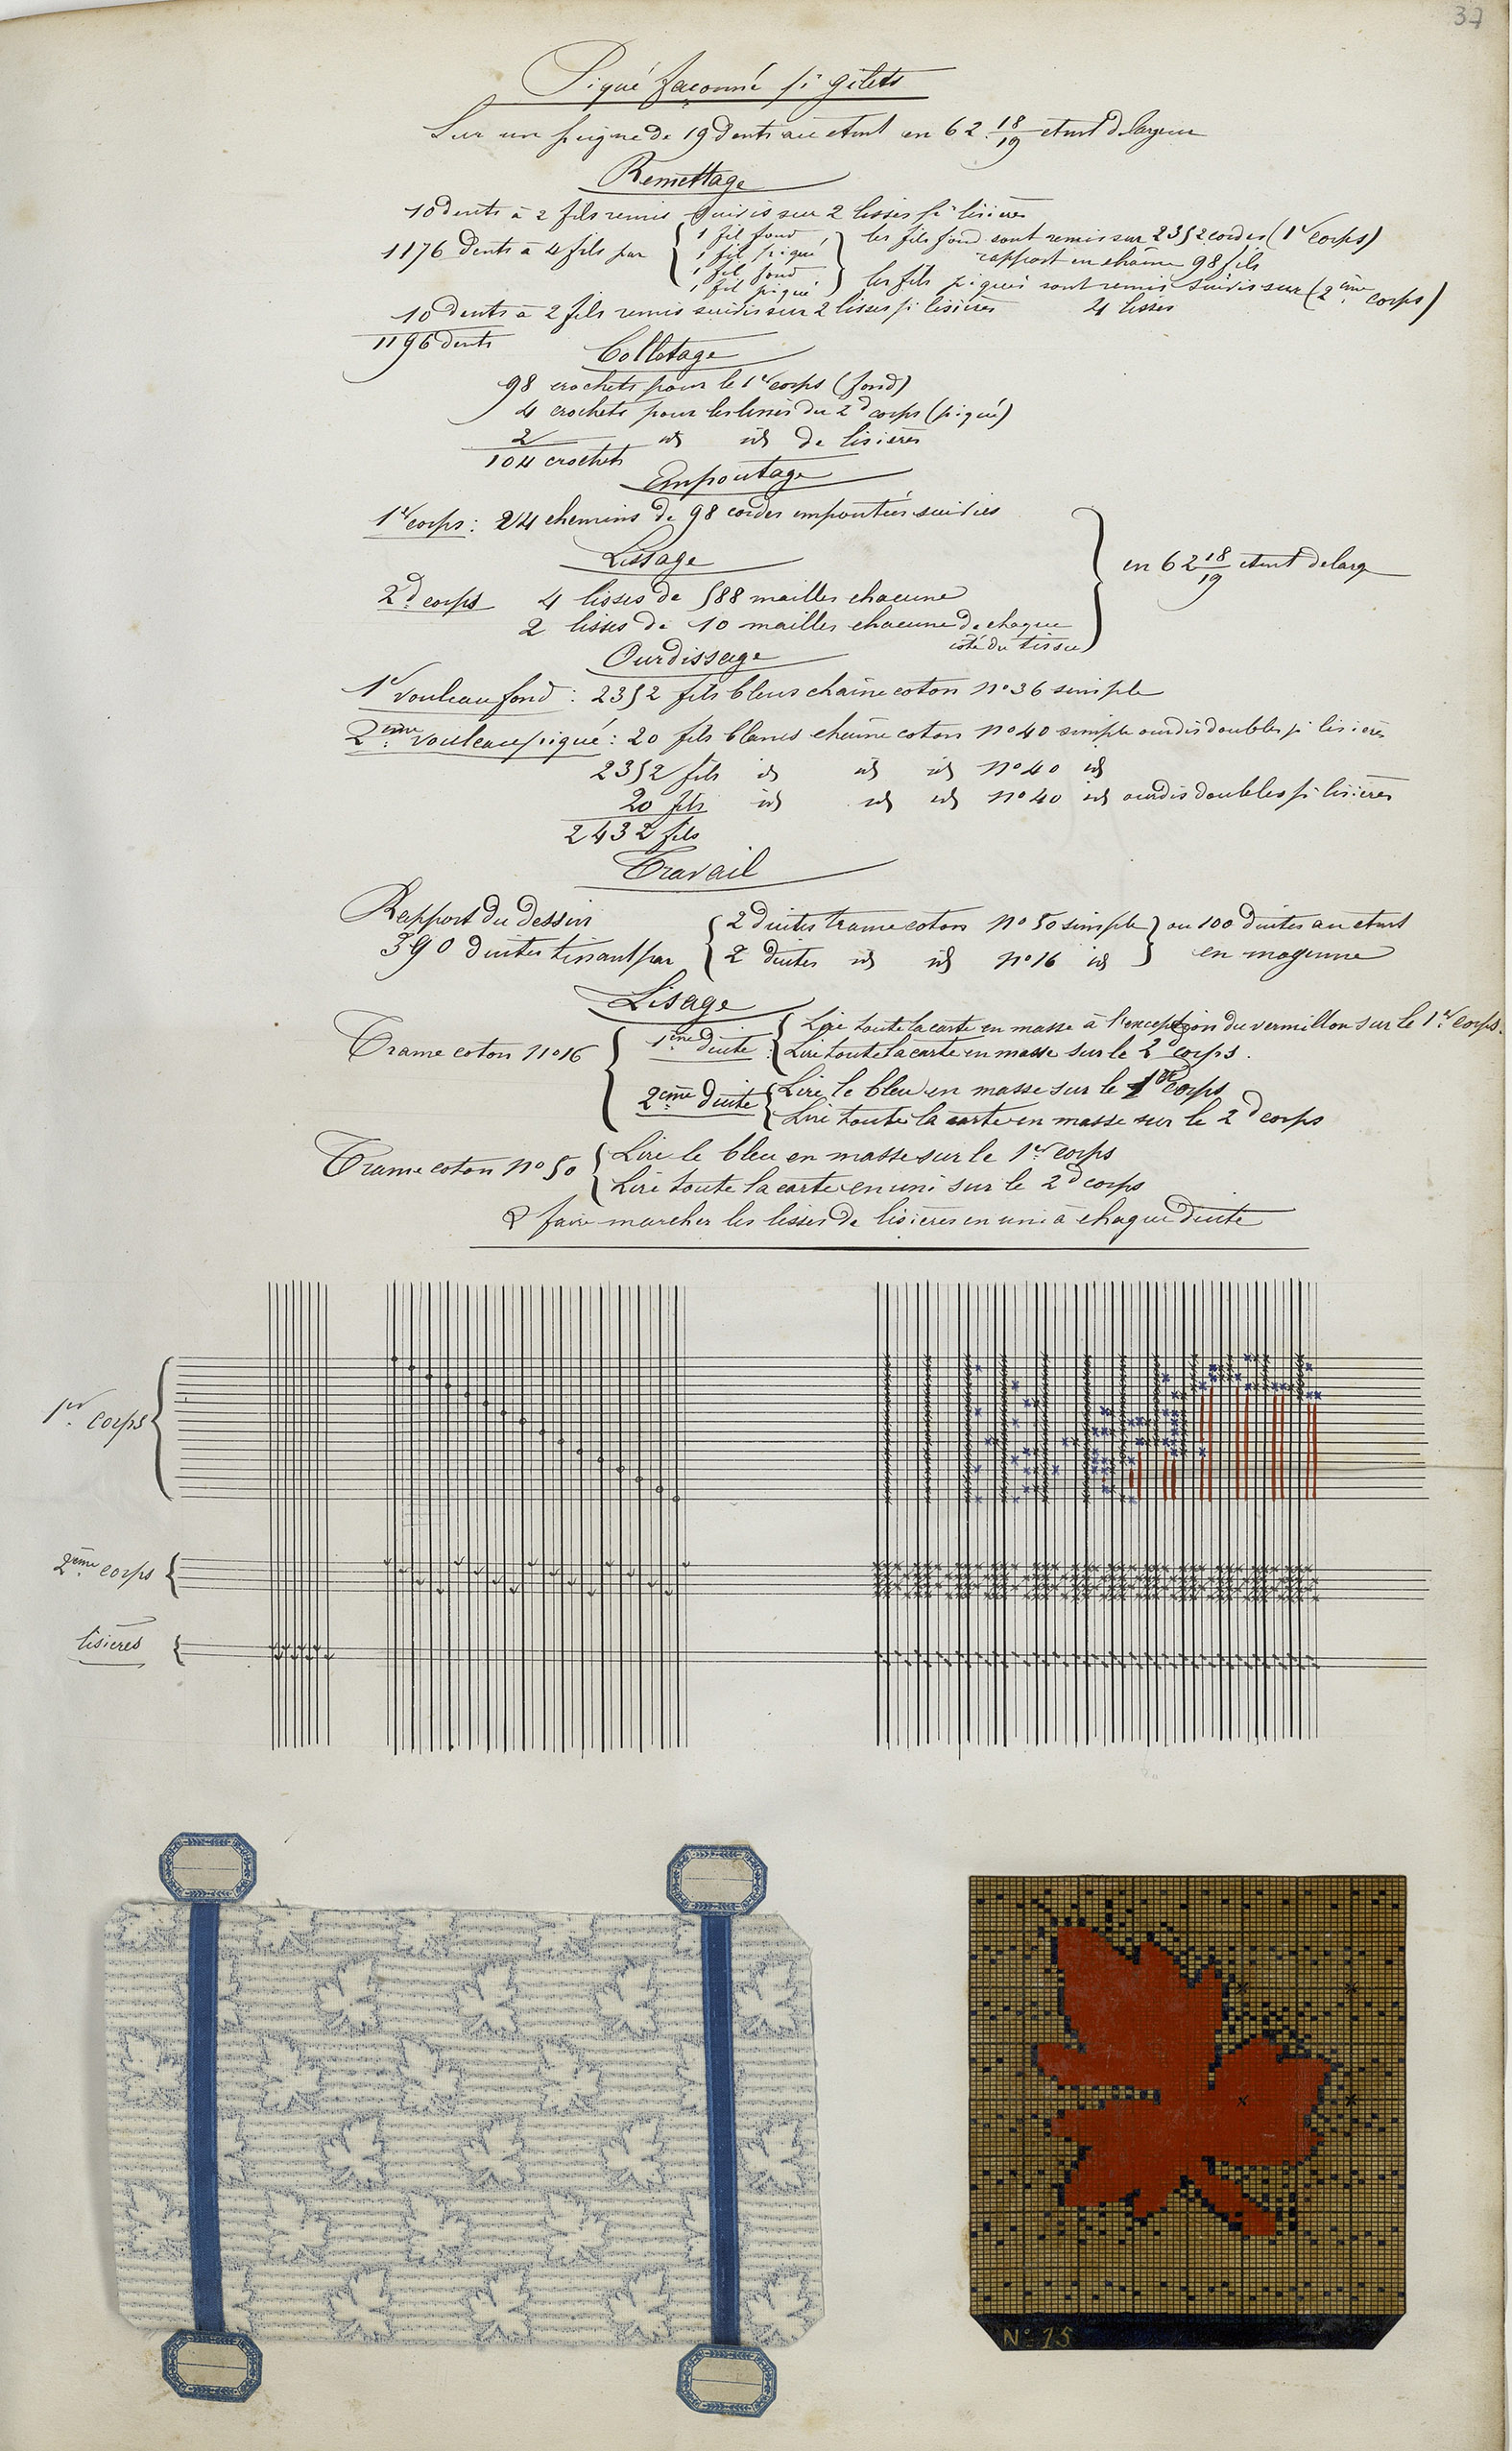 37
Piqué façonné pr gilets
Sur un peigne de 19 dents au ctmt en 62 18/19 ctmt de largeur
Remettage
10 dents à 2 fils remis suivis sur 2 lisses pr lisières
1176 dents à 4 fils par { 1 fil fond
1 fil piqué
1 fil fond
1 fil piqué } les fils fond sont remis sur 2352 cordes (1er corps)
rapport en chaîne 98 fils
les fils piqués sont remis suivis sur (2ème corps)
4 lisses
10 dents à 2 fils remis suivis sur 2 lisses pr lisières
1196 dents
Colletage
98 crochets pour le 1er corps (fond)
4 crochets pour les lisses du 2d corps (piqué)
2 id id de lisières
104 crochets
Empoutage
1er corps : 24 chemins de 98 cordes empoutées suivies
Lissage
2d corps 4 lisses de 588 mailles chacune
2 lisses de 10 mailles chacune de chaque
côté du tissu
} en 62 18/19 ctmt de larg
Ourdissage
1er rouleau fond : 2352 fils bleus chaîne coton no 36 simple
2ème rouleau piqué : 20 fils blancs chaîne coton no 40 simple ourdis doubles pr lisières
2352 fils id id id no 40 id
20 fils id id id no 40 id ourdis doubles pr lisières
2432 fils
Travail
Rapport du dessin
390 duites tissant par { 2 duites trame coton no 50 simple
2 duites id id no 16 id } ou 100 duites au ctmt
en moyenne
Lisage
Trame coton no 16 { 1ère duite : { Lire toute la carte en masse à l'exception du vermillon sur le 1er corps.
Lire toute la carte en masse sur le 2d corps.
2ème duite { Lire le bleu en masse sur le 1er corps
Lire toute la carte en masse sur le 2d corps
Trame coton no 50 { Lire le bleu en masse sur le 1er corps
Lire toute la carte en uni sur le 2d corps
& faire marcher les lisses de lisières en uni à chaque duite
1er corps
2ème corps
lisières
No 15